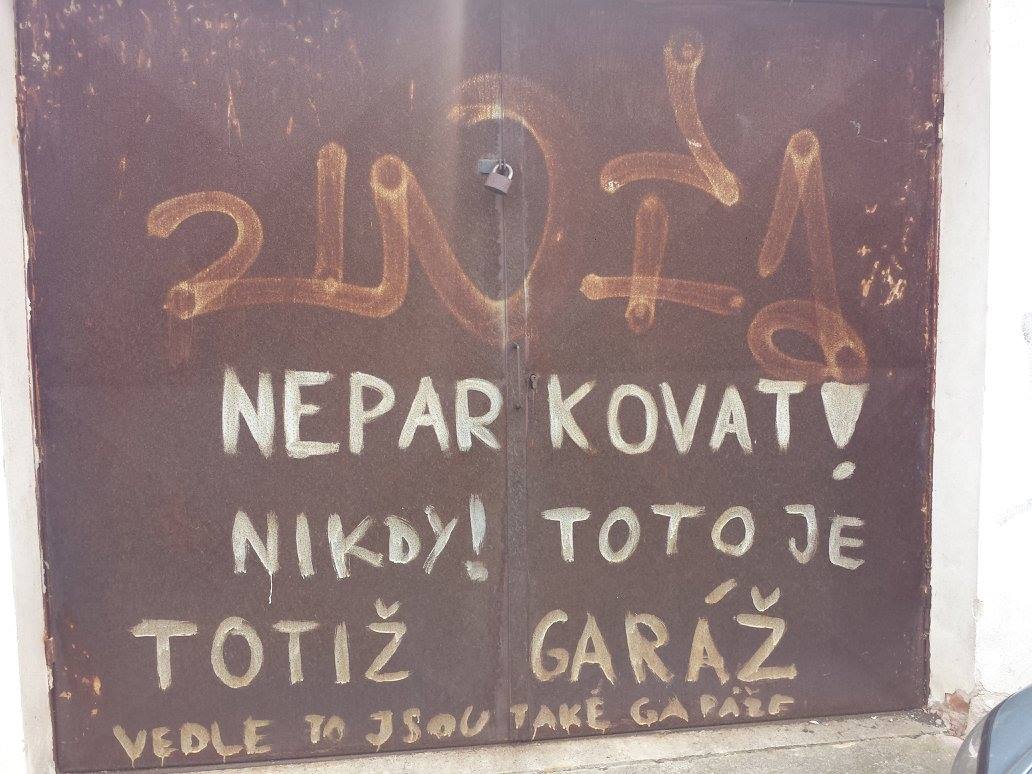 NEPARKOVAT!
NIKDY! TOTO JE
TOTIŽ GARÁŽ
VEDLE TO JSOU TAKÉ GARÁŽE